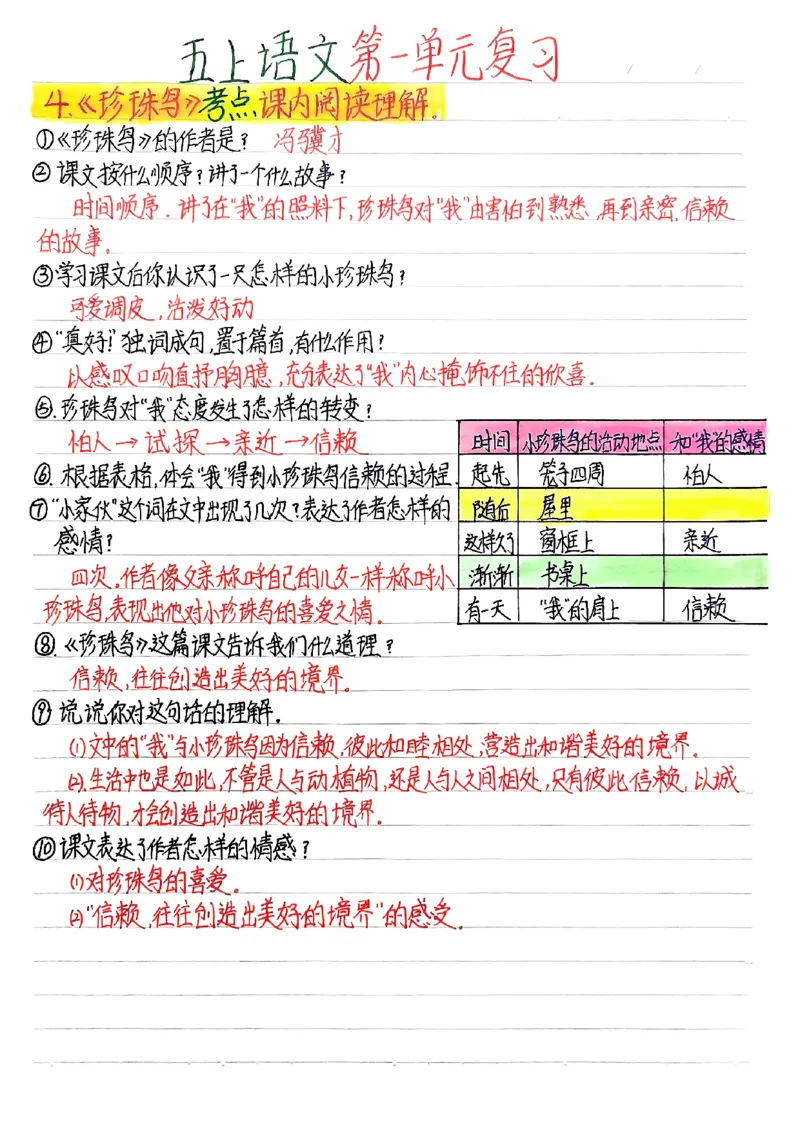 五上语文第一单元复习
4.《珍珠鸟》考点课内阅读理解.
①《珍珠鸟》的作者是? 冯骥才
②课文按什么顺序?讲了一个什么故事?
时间顺序.讲了在"我"的照料下,珍珠鸟对"我"由害怕到熟悉,再到亲密,信赖
的故事。
③学习课文后你认识了一只怎样的小珍珠鸟?
可爱调皮,活泼好动
④"真好!"独词成句,置于篇首,有什么作用?
以感叹口吻直抒胸臆,充分表达了"我"内心掩饰不住的欣喜.
⑤.珍珠鸟对"我"态度发生了怎样的转变?
怕人→试探→亲近→信赖
⑥.根据表格,体会"我"得到小珍珠鸟信赖的过程.
⑦"小家伙"这个词在文中出现了几次?表达了作者怎样的
感情?
四次.作者像父亲称呼自己的儿女一样称呼小
珍珠鸟,表现出他对小珍珠鸟的喜爱之情.
时间 小珍珠鸟的活动地点 和"我"的感情
起先 笼子四周 怕人
随后 屋里
这样久了 窗框上 亲近
渐渐 书桌上
有一天 "我"的肩上 信赖
⑧.《珍珠鸟》这篇课文告诉我们什么道理?
信赖,往往创造出美好的境界.
⑨说说你对这句话的理解.
(1)文中的"我"与小珍珠鸟因为信赖,彼此和睦相处,营造出和谐美好的境界.
(2).生活中也是如此,不管是人与动植物,还是人与人之间相处,只有彼此信赖,以诚
待人待物,才会创造出和谐美好的境界.
⑩课文表达了作者怎样的情感?
(1)对珍珠鸟的喜爱.
(2)"信赖,往往创造出美好的境界"的感受.